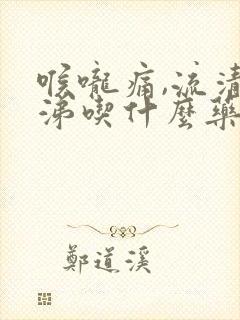 喉嚨痛,流清
涕喫什麼藥
鄭道溪